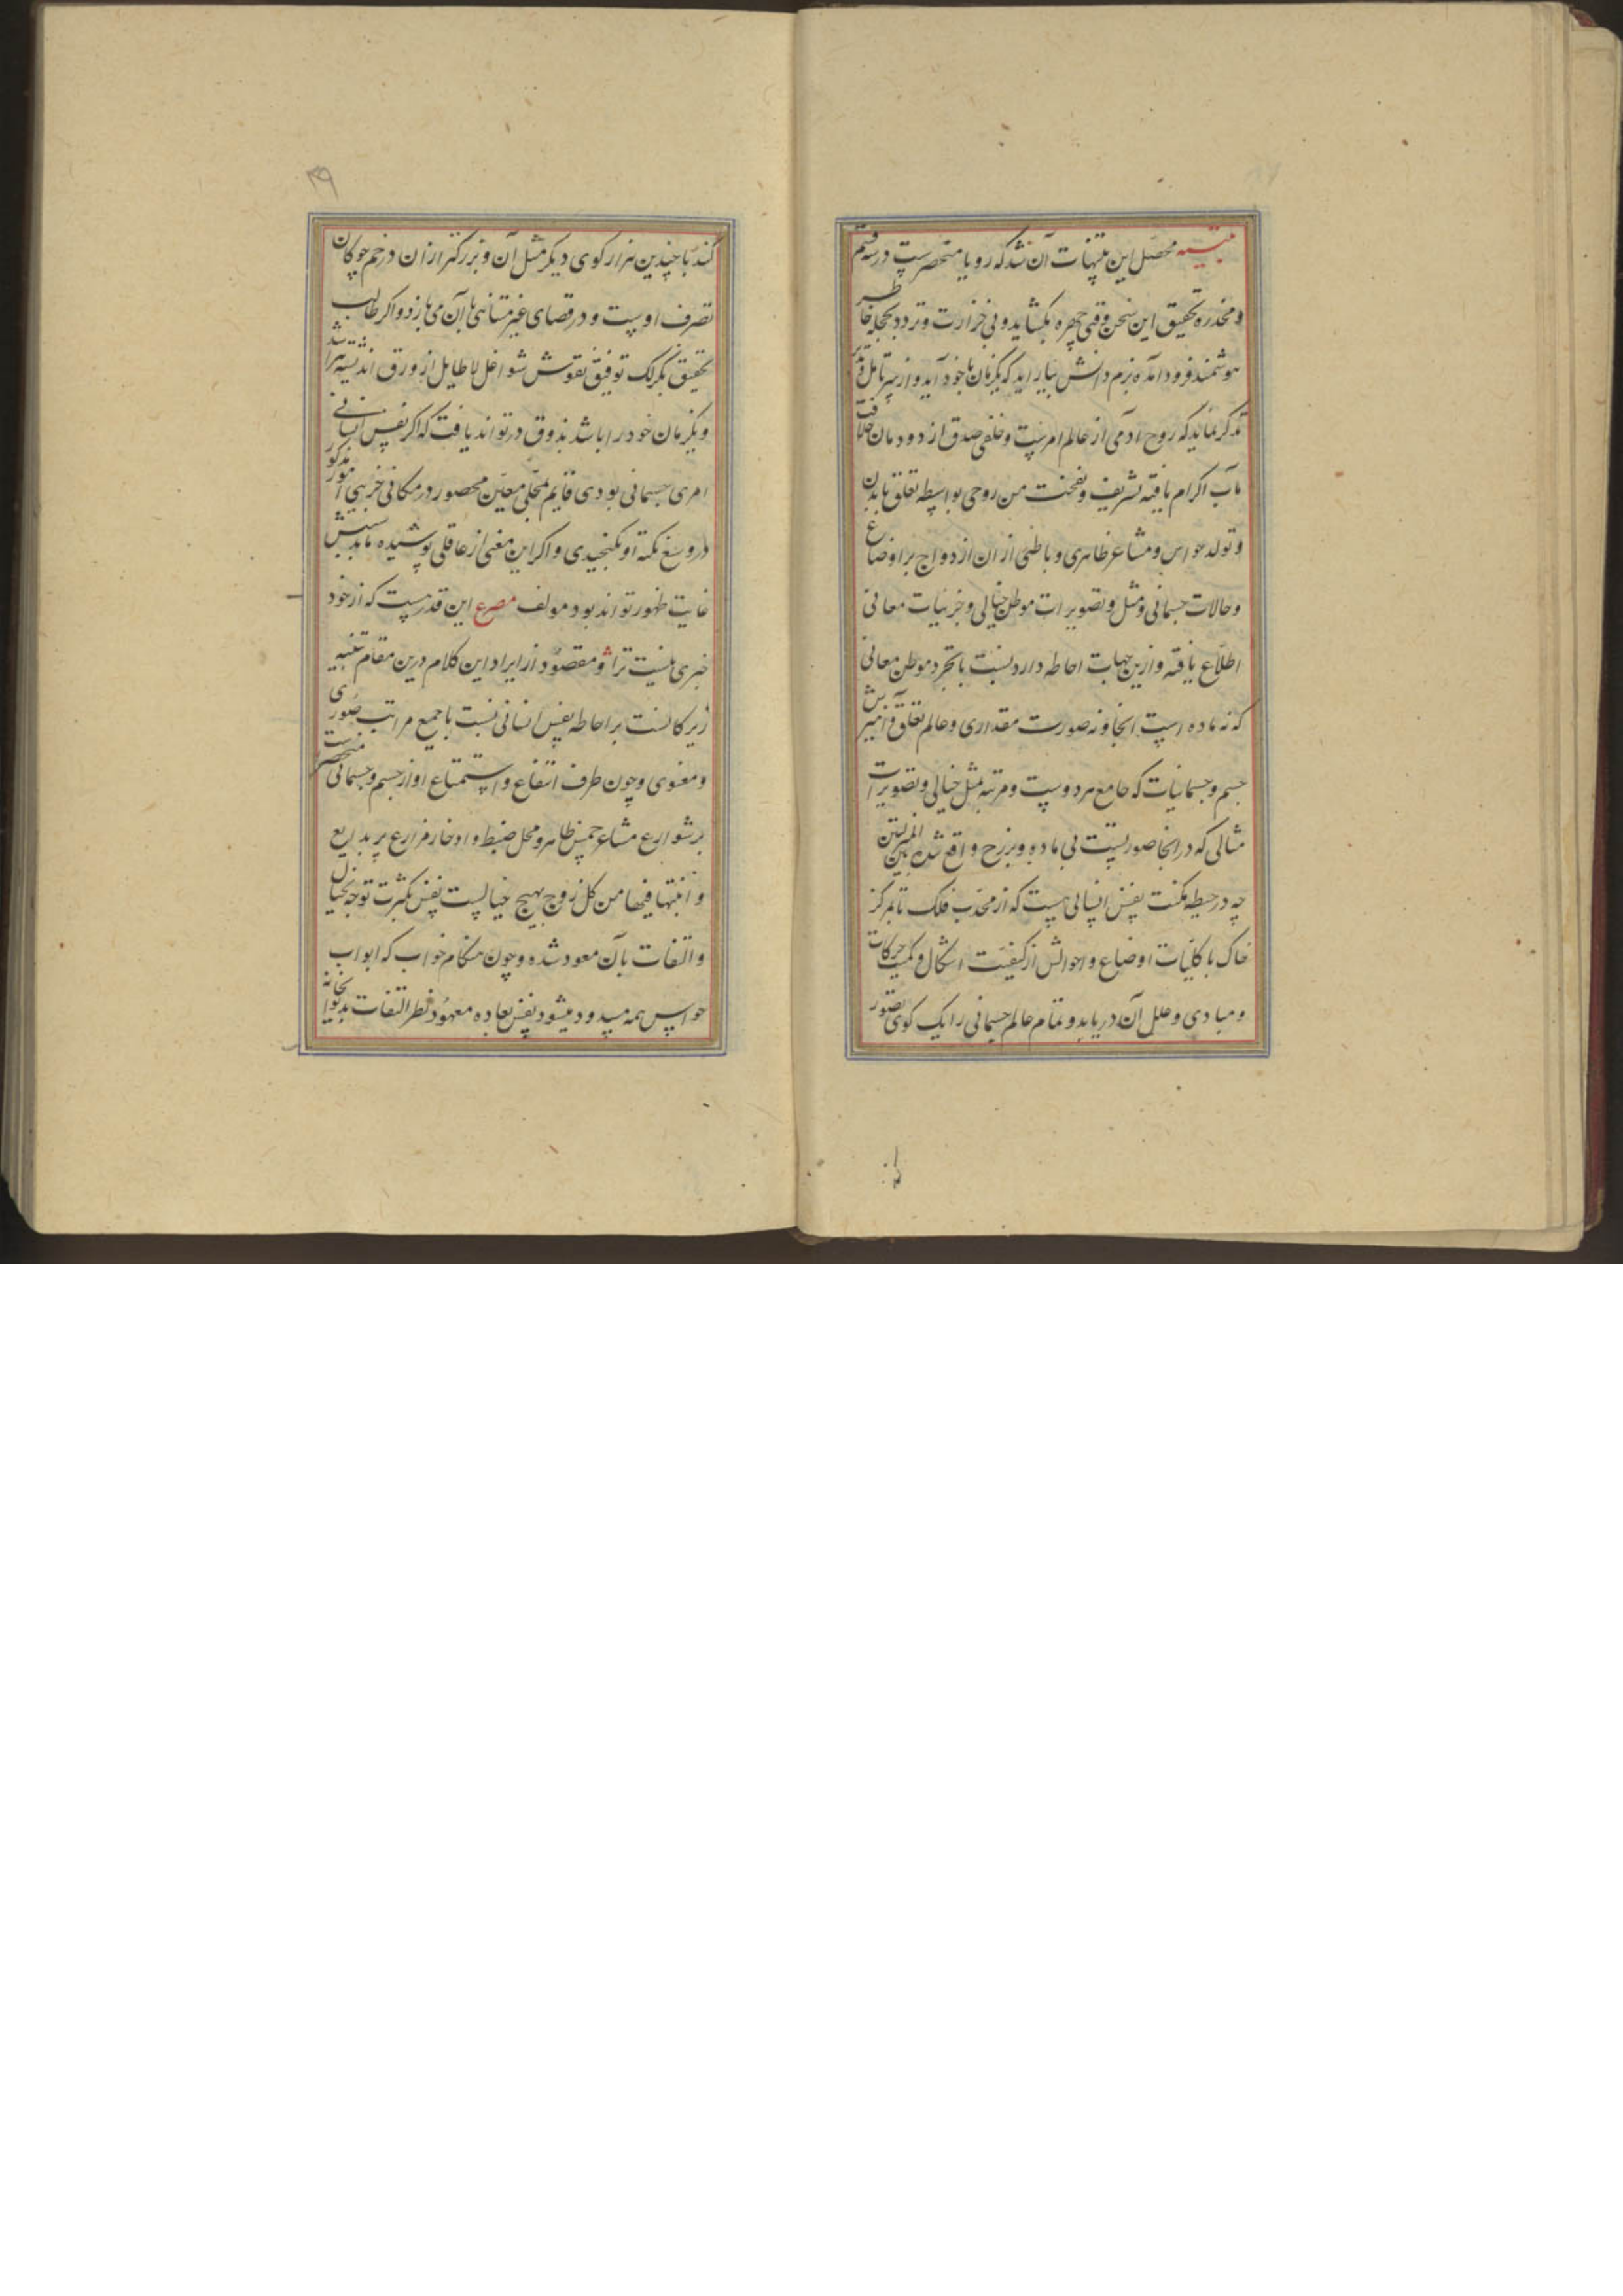 تنبیه محصل این تنبیهات آن شد که رویا منحصرست در سه قسم
و مخدره تحقیق این سخن وقتی چهره بکشاید و بی حزازت و تردد بحجله خاطر
هوشمند فرود آمده بزم دانش بیاراید که یکزمان باخود آید و از سر تامل و تدبر
تذکر نماید که روح ادمی از عالم امرست و خلفی صدق از دودمان خلافت
مآب اکرام یافته تشریف و نفخت من روحی بواسطه تعلق بابدن
و تولد حواس و مشاعر ظاهری و باطنی از ان ازدواج بر اوضاع
و حالات جسمانی و مثل و تصویرات موطن خیالی و جزییات معانی
اطلاع یافته و ازین جهات احاطه دارد نسبت با تجرد موطن معانی
که نه ماده است انجا و نه صورت مقداری و عالم تعلق و آمیزش
جسم و جسمانیات که جامع هر دوست و مرتبه مثل خیالی و تصویرات
مثالی که در انجا صورتست بی ماده و برزخ واقع شده بین المنزلتین
چه در حیطه مکنت نفس انسانی هست که از محدب فلک تا مرکز
خاک با کلیات اوضاع و احوالش از کیفیت اشکال و کمیت حرکات
و مبادی و علل آن دریابد و تمام عالم جسمانی را یک کوی تصور
۳۹
کند با چندین هزار کوی دیکر مثل آن و بزرکتر از ان در خم چوکان
تصرف اوست و در فضای غیر متناهی با آن می بازد و اکر طالب
تحقیق بکزلک توفیق نقوش شواغل لاطایل از ورق اندیشه بتراشد
و یکزمان خود را باشد بذوق در تواند یافت که اکر نفس انسانی
امری جسمانی بودی قایم بمحلی معین محصور در مکانی جزیی امور مذکور
در وسع مکنة او نکنجیدی و اکر این معنی از عاقلی پوشیده ماند سببش
غایت ظهور تواند بود مولف مصرع این قدر هست که از خود
خبری نیست ترا و مقصود از ایراد این کلام درین مقام تنبیه
زیرکانست بر احاطه نفس انسانی نسبت با جمیع مراتب صوری
و معنوی و چون طرف انتفاع و استمتاع او از جسم و جسمانی منحصرست
بر شوارع مشاعر خمس ظاهر و محل ضبط و ادخار مزارع پر بدایع
و انبتنا فیها من کل زوج بهیج خیالست نفس بکثرت توجه بخیال
و التفات بآن معود شده و چون هنکام خواب که ابواب
حواس همه مسدود میشود نفس بعاده معهود نظر التفات بدیوانخانه